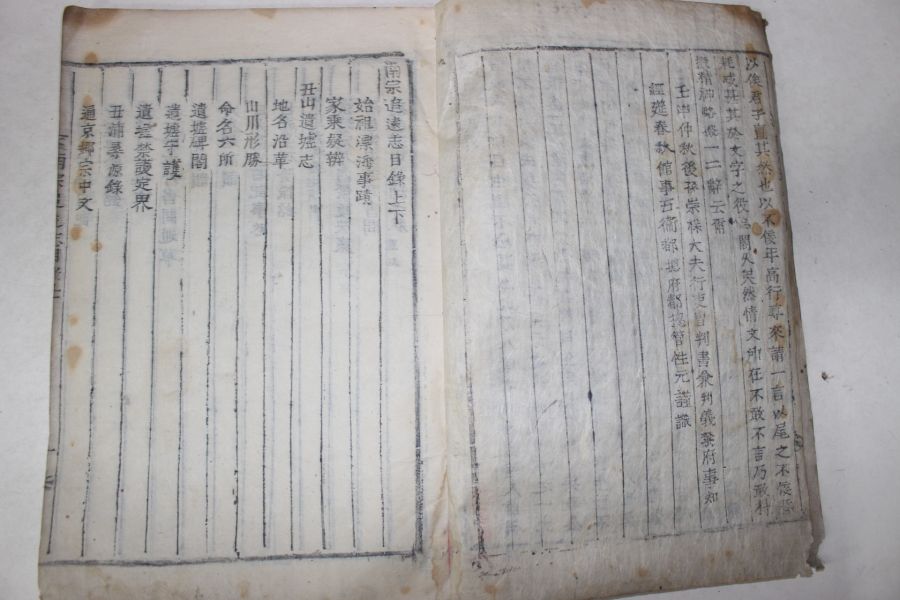 以俟君子豈其然也以不佞年高行尊來請一言以尾之不佞
耗或其其於文字之役閣久矣然情文所在不敢不言乃敢材
精神略撥一二辭云爾
壬申仲秋後孫崇祿大夫行吏曹判書兼判義禁府事知
經筵春秋館事五衛都摠府都摠管性元謹識
南宗追遠志目錄上下
始祖漂海事蹟
家乘疑辨
丑山遺墟志
地名沿革
山川形勝
命名六所
遺墟碑閣
遺墟守護
遺墟禁護定界
丑浦尋源錄
通京鄕宗中文